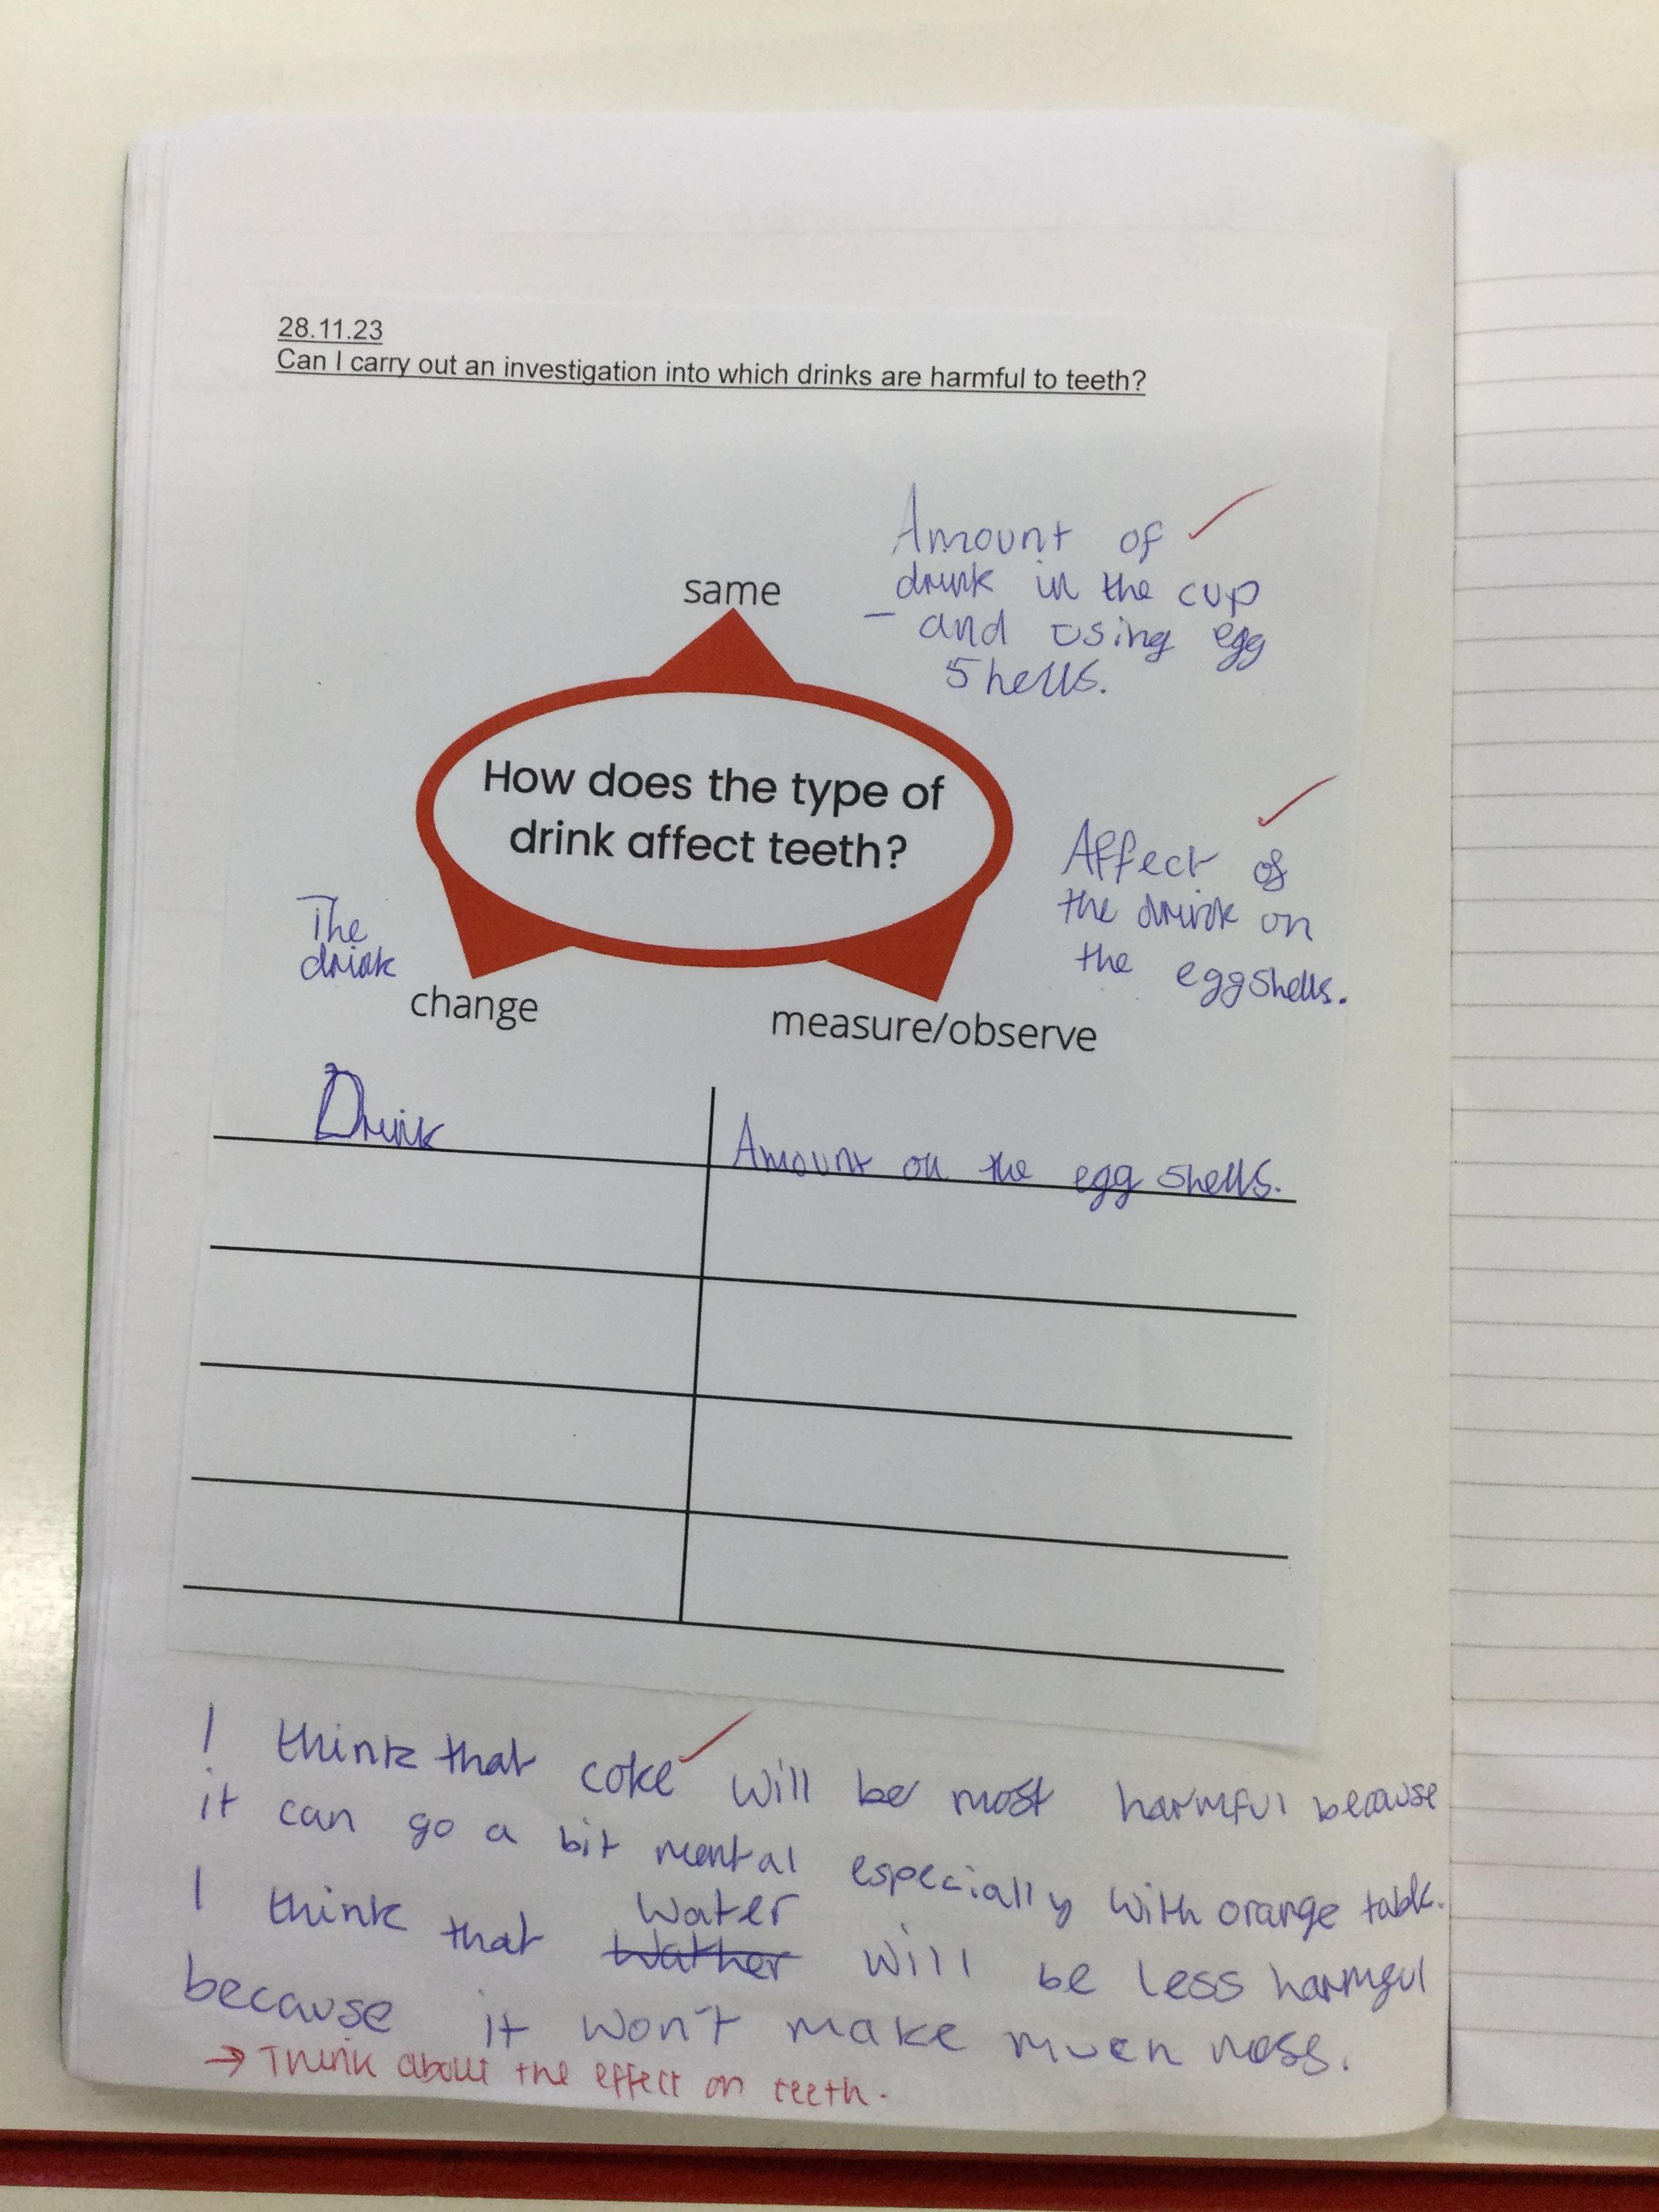 28.11.23
Can I carry out an investigation into which drinks are harmful to teeth?
Amount of
drink in the cup
- and using egg
shells.
same
How does the type of
drink affect teeth?
Affect of
the drink on
the eggshells.
The
drink
change
measure/observe
Drink
Amount on the egg shells.
I think that coke will be most harmful because
it can go a bit mental especially with orange
I think that Water
Wather will be less harmful
because it won't make much mess.
→ Think about the effect on teeth.